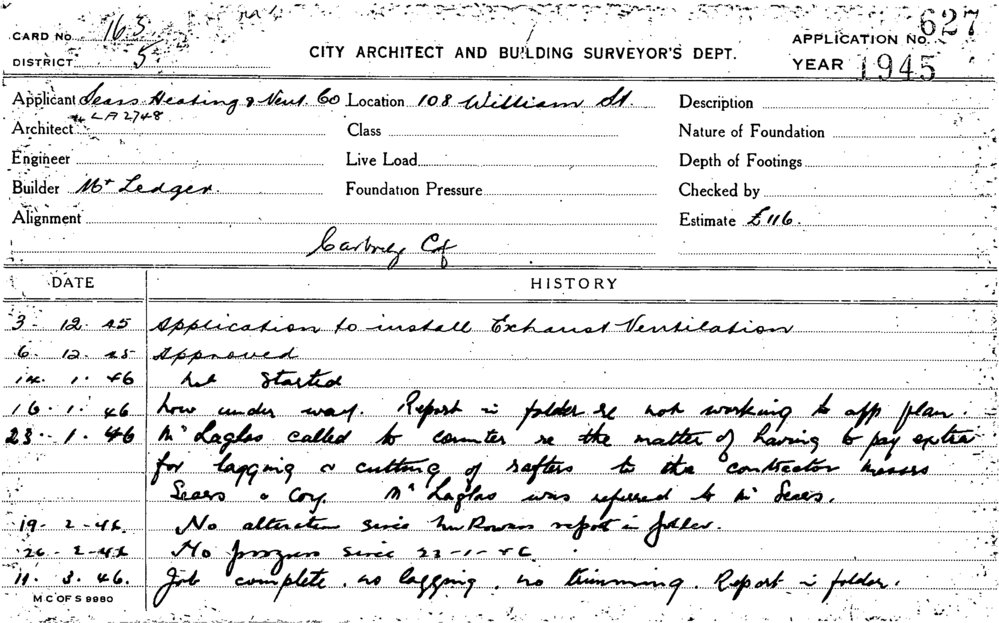 CARD No 163
DISTRICT 5
CITY ARCHITECT AND BUILDING SURVEYOR'S DEPT.
APPLICATION No. 627
YEAR 1945
Applicant Sears Heating & Vent. Co Location 108 William St. Description
LA2748
Architect Class Nature of Foundation
Engineer Live Load Depth of Footings
Builder Mr Ledger. Foundation Pressure Checked by
Alignment Estimate £116.
DATE HISTORY
3. 12. 45 Application to install Exhaust Ventilation
6. 12. 45 Approved
14. 1. 46 Not Started
16. 1. 46 Now under way. Report in folder re not working to app plan.
23. 1. 46 Mr Laglas called to counter re the matter of having to pay extra
for lagging & cutting of rafters to the contractor Messrs
Sears & Coy. Mr Laglas was referred to Mr Sears.
19. 2. 46. No alteration since report in folder.
26. 2. 46 No progress since 23-1-46.
11. 3. 46. Job complete. no lagging. no trimming. Report in folder.
M C OF S 9980